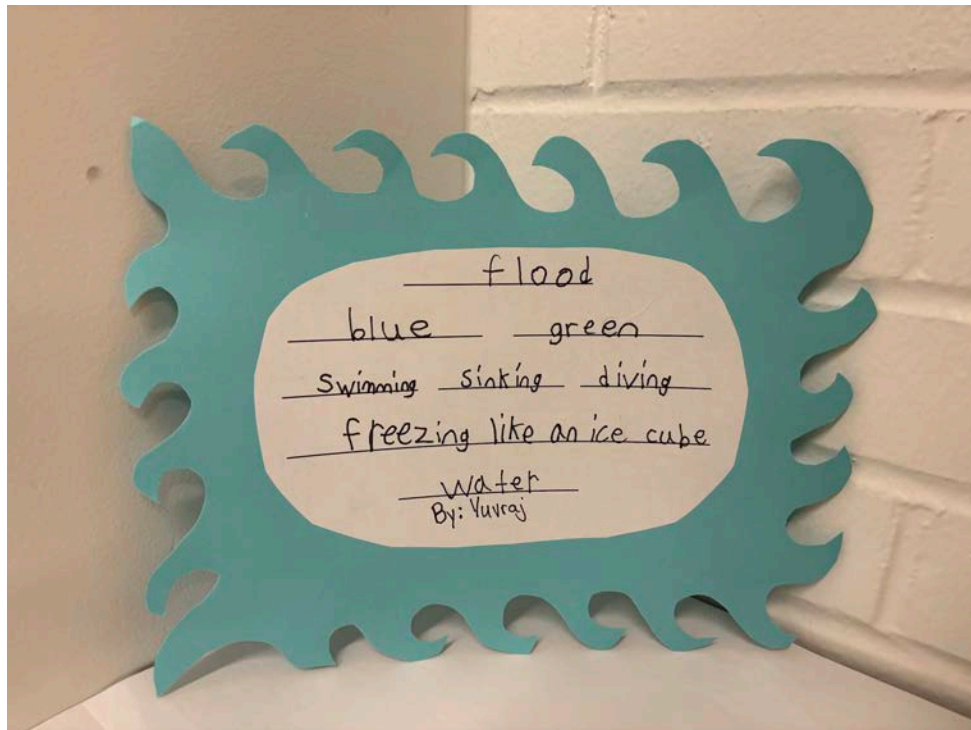 flood
blue green
swimming sinking diving
freezing like an ice cube
water
By: Yuvraj